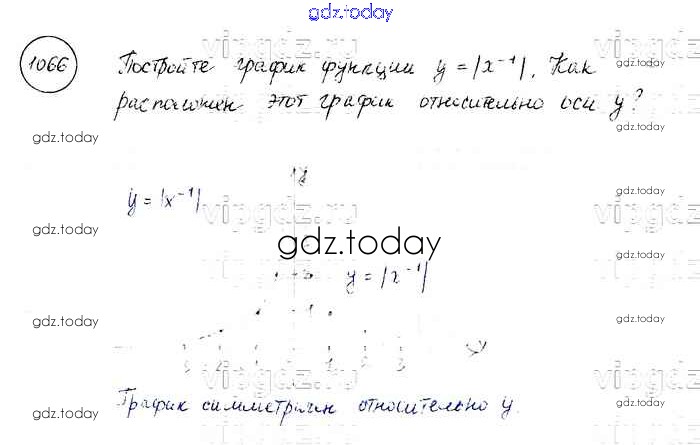 gdz.today
1066 Постройте график функции y = |x⁻¹|. Как
расположен этот график относительно оси y?
gdz.today
gdz.today
y
y = |x⁻¹|
gdz.today
gdz.today
gdz.today
y = |x⁻¹|
gdz.today
gdz.today
1
gdz.today
gdz.today
3 2 1 1 2 3
График симметричен относительно y.
gdz.today
gdz.today